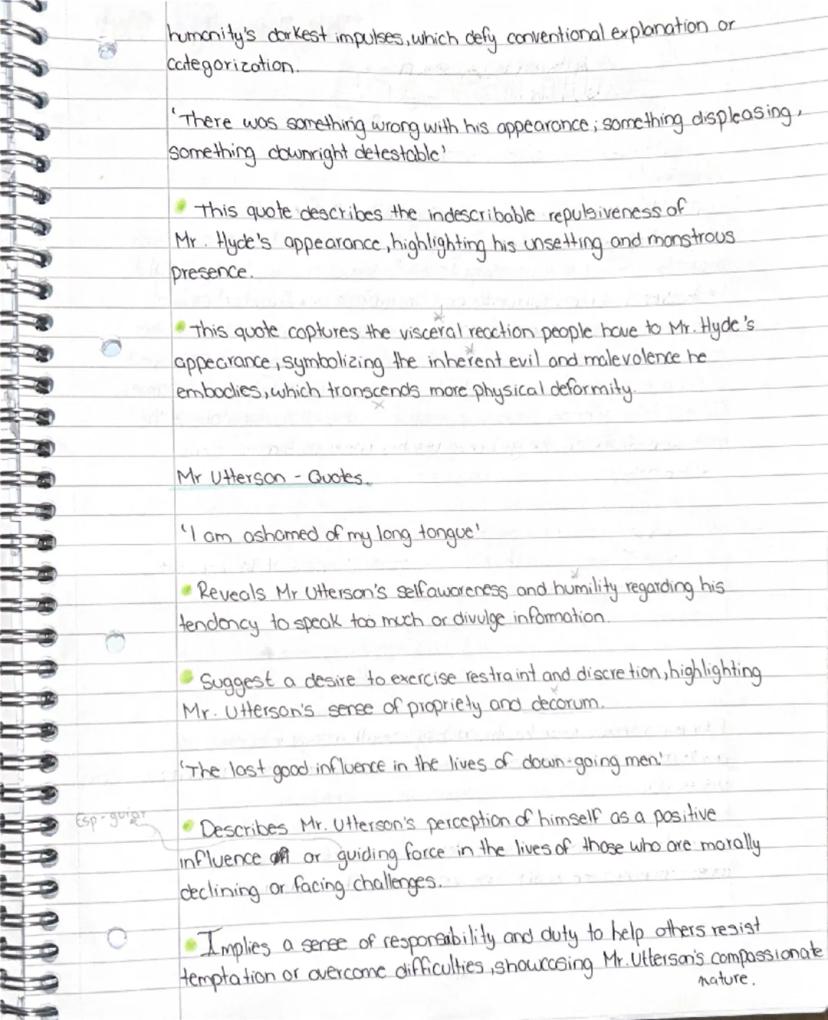 humanity's darkest impulses, which defy conventional explanation or
categorization.
'There was something wrong with his appearance; something displeasing,
something downright detestable'
This quote describes the indescribable repulsiveness of
Mr. Hyde's appearance, highlighting his unsetting and monstrous
presence.
This quote captures the visceral reaction people have to Mr. Hyde's
appearance, symbolizing the inherent evil and malevolence he
embodies, which transcends mere physical deformity.
Mr Utterson - Quotes.
'I am ashamed of my long tongue'
Reveals Mr Utterson's selfawareness and humility regarding his
tendency to speak too much or divulge information.
Suggest a desire to exercise restraint and discretion, highlighting
Mr. Utterson's sense of propriety and decorum.
'The last good influence in the lives of down-going men.'
Esp - guiar
Describes Mr. Utterson's perception of himself as a positive
influence or guiding force in the lives of those who are morally
declining or facing challenges.
Implies a sense of responsability and duty to help others resist
temptation or overcome difficulties, showcasing Mr. Utterson's compassionate
nature.